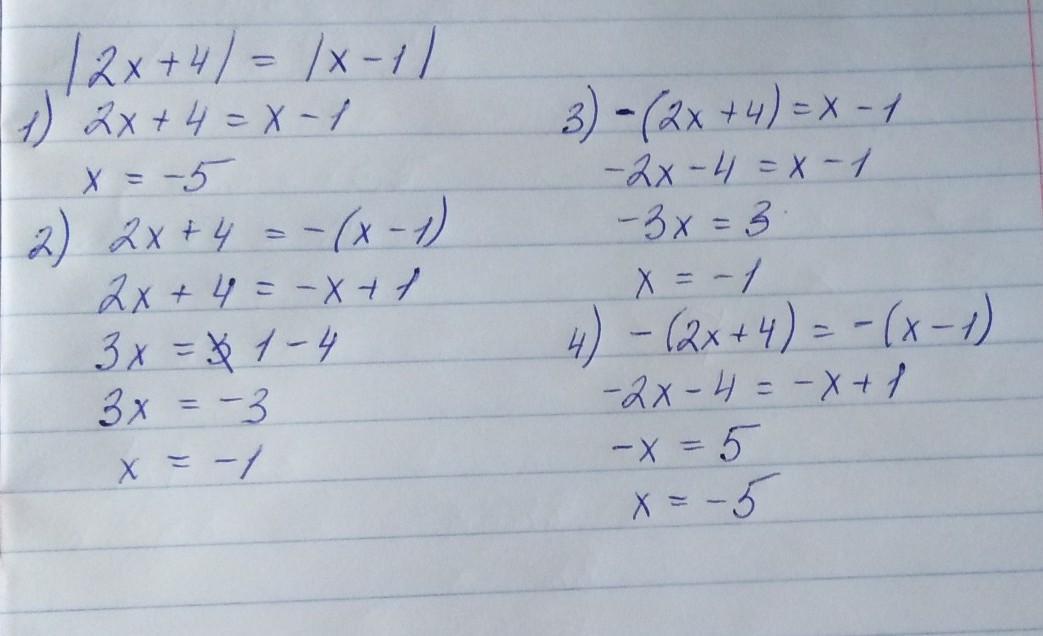 |2x+4| = |x-1|
1) 2x+4 = x-1
x = -5
2) 2x+4 = -(x-1)
2x+4 = -x+1
3x = 1-4
3x = -3
x = -1
3) -(2x+4) = x-1
-2x-4 = x-1
-3x = 3
x = -1
4) -(2x+4) = -(x-1)
-2x-4 = -x+1
-x = 5
x = -5